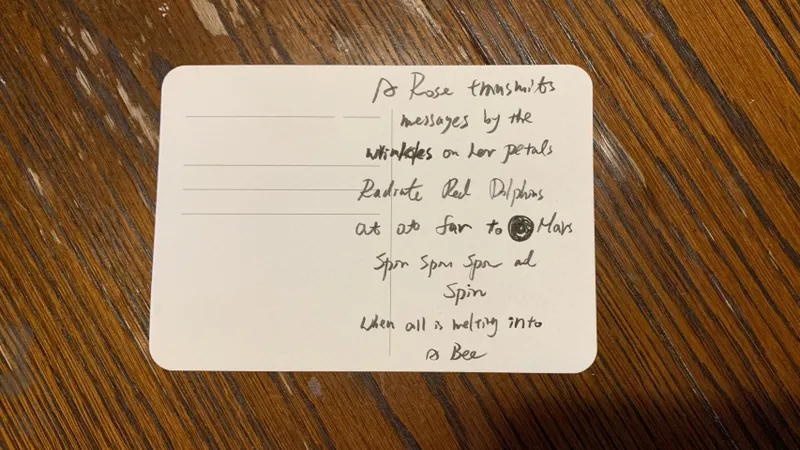 A Rose transmits
messages by the
wrinkles on her petals
Radiate Red Dolphins
at at far to Mars
Spin Spin Spin ad
Spin
when all is melting into
a Bee